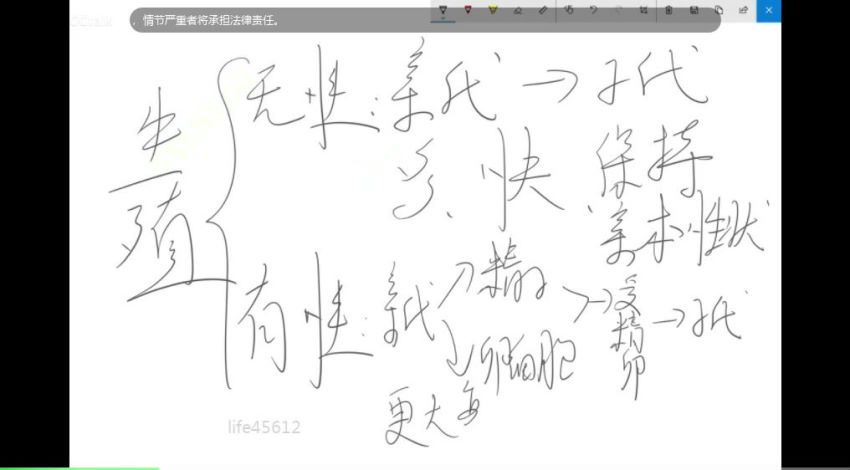 ，情节严重者将承担法律责任。
生殖
无性：亲代→子代
多、快 保持
亲本性状
有性：亲代
精子
卵细胞
→受精卵→子代
更大
life45612